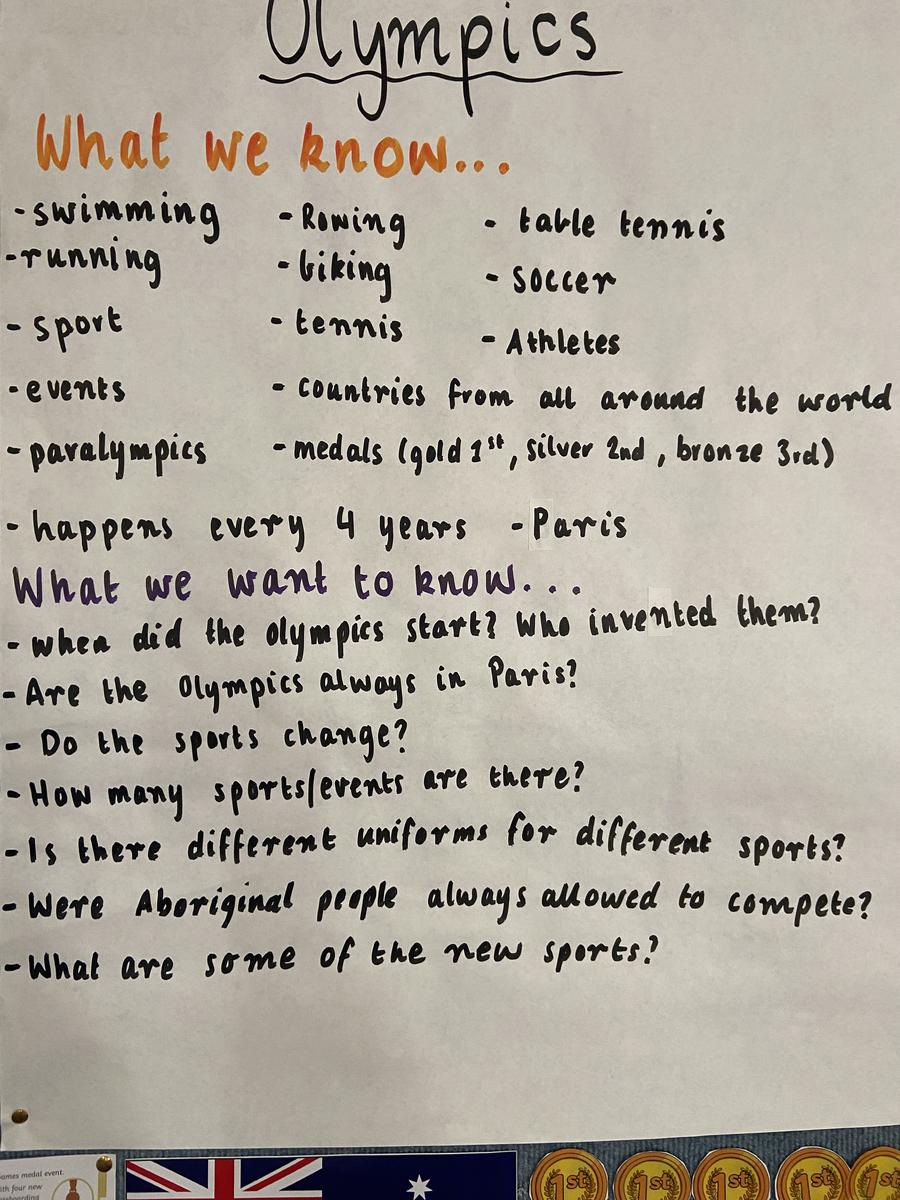 Olympics
What we know...
- swimming - Rowing - table tennis
- running - biking - soccer
- sport - tennis - Athletes
- events - countries from all around the world
- paralympics - medals (gold 1st, silver 2nd, bronze 3rd)
- happens every 4 years - Paris
What we want to know...
- when did the olympics start? Who invented them?
- Are the Olympics always in Paris?
- Do the sports change?
- How many sports/events are there?
- Is there different uniforms for different sports?
- Were Aboriginal people always allowed to compete?
- What are some of the new sports?
ames medal event.
ith four new
1st 1st 1st 1st 1st